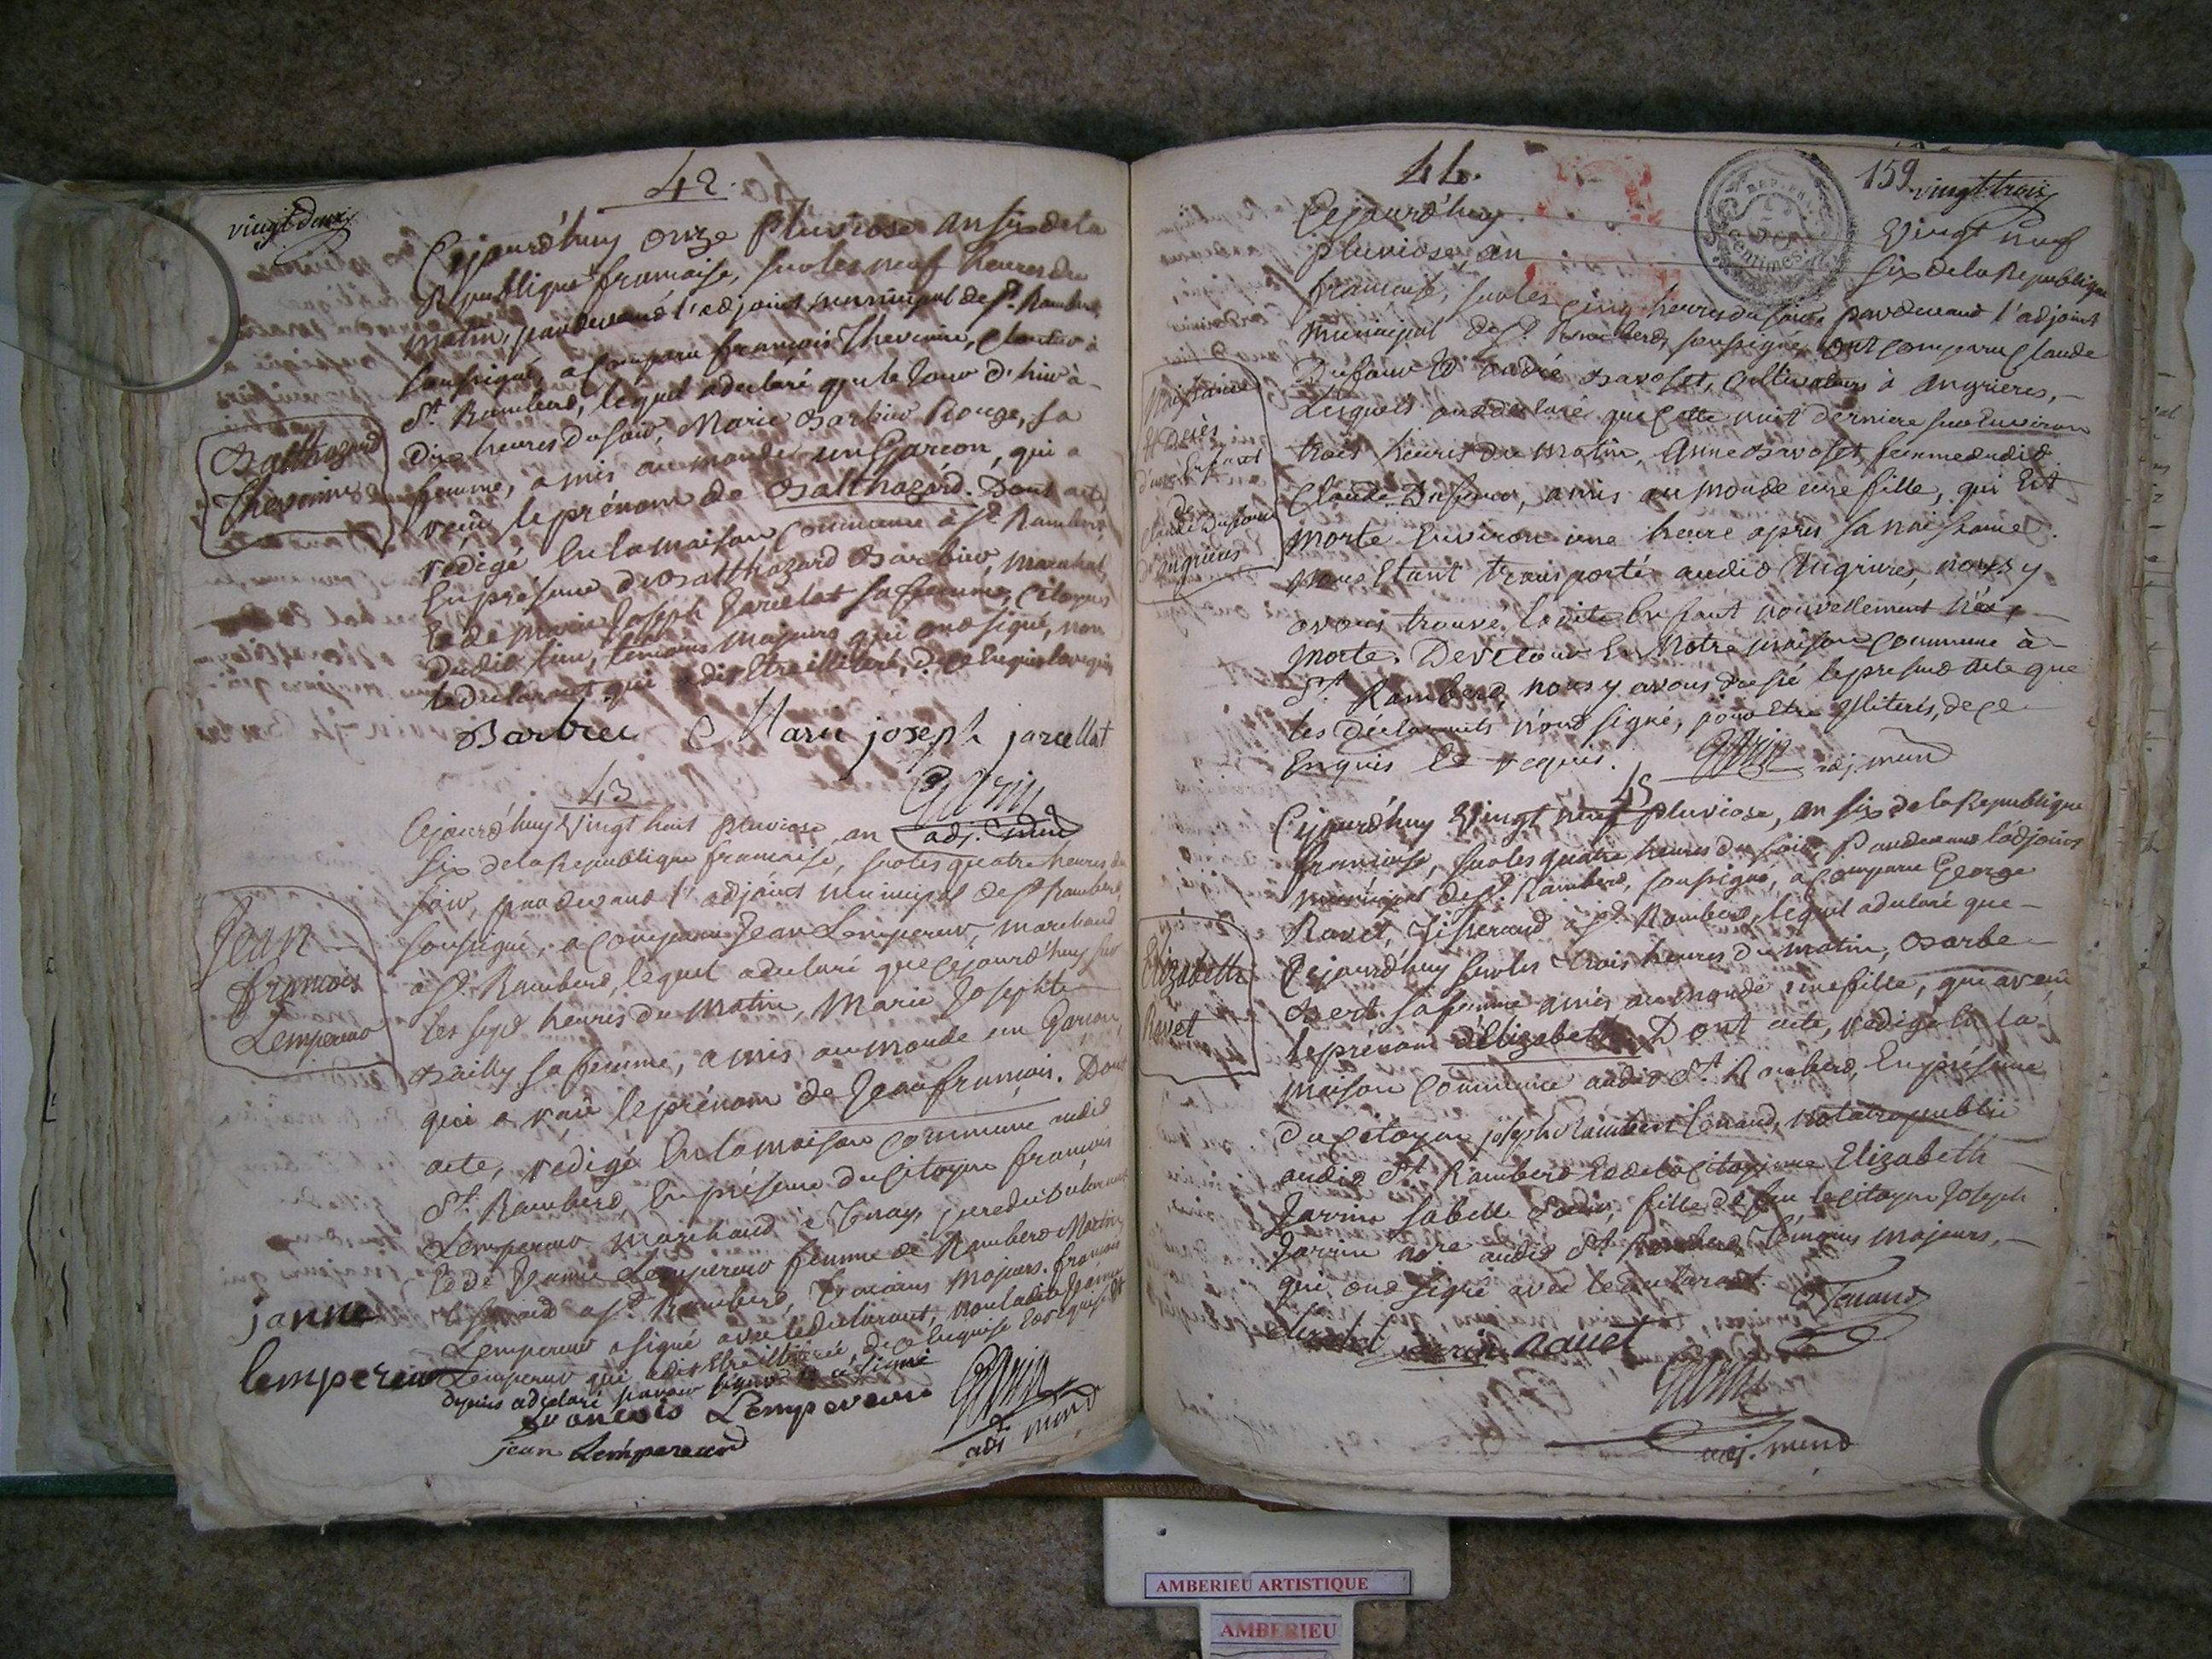 vingt deux
42.
Cejourd'huy onze Pluviose an six de la
Republique francaise, sur les neuf heures du
matin, pardevant l'adjoint municipal de St. Rambert
soussigné, a comparu françois Thevenin, à
St. Rambert, lequel a declaré que le Jour d'hier à
dix heures du soir, Marie Barbier Rouge, sa
femme, a mis au monde un Garcon, qui a
reçu le prénom de Balthazard. Dont acte,
rédigé En la maison Commune à St. Rambert
En présence de Balthazard Barbier, marechal
Et de Marie Joseph Jarcelat sa femme, Citoyens
dudit lieu, temoins majeurs qui ont signé, non
le declarant qui a dit Etre illiteré, de ce Enquis Et requis
Balthazard
Thevenin
Barbier Marie joseph jarcellat
Garin
adj. mun
43
Cejourd'huy Vingt huit pluviose an
six de la Republique francaise, sur les quatre heures du
soir, pardevant l'adjoint municipal de St. Rambert
soussigné, a comparu Jean Lempereur, marchand
à St. Rambert, lequel a declaré que cejourd'huy sur
les sept heures du matin, Marie Josephte
Bailly sa femme, a mis au monde un Garcon,
qui a reçu le prénom de Jean françois. Dont
acte, rédigé En la maison Commune audit
St. Rambert, En présence du Citoyen françois
Lempereur marchand à Tenay, pere du Declarant
Et de Jeanne Lempereur femme de Rambert Martin
Tisserand à St. Rambert, temoins majeurs. françois
Lempereur a signé avec le declarant, non ladite Jeanne
Lempereur qui a dit Etre illiterée, de ce Enquise Et requise Et
depuis a declaré savoir signer et a signé
Jean
francois
Lempereur
janne
lempereur
francois Lempereur
jean Lempereur
Garin
adj mun
44.
159
vingt trois
Cejourd'huy Vingt neuf
pluviose, an six de la Republique
francaise, sur les cinq heures du soir, pardevant l'adjoint
municipal de St. Rambert, soussigné, ont comparu Claude
Dufour Et André Bavoset, Cultivateurs à Angrieres,
Lesquels ont declaré que cette nuit derniere sur Environ
trois heures du matin, Anne Bavoset, femme dudit
Claude Dufour, a mis au monde une fille, qui Est
morte Environ une heure apres sa naissance.
Nous Etant transporté audit Angrieres, nous y
avons trouvé ladite Enfant nouvellement née,
morte. De retour En Notre maison Commune à
St. Rambert, nous y avons dressé le present acte que
les déclarants n'ont signé, pour Etre illiterés, de ce
Enquis Et requis.
Naissance
Et Decès
d'un Enfant
de
Claude Dufour
d'angrieres
Garin adj. mun
45
Cejourd'huy Vingt neuf pluviose, an six de la Republique
francaise, sur les quatre heures du soir, Pardevant l'adjoint
municipal de St. Rambert, soussigné, a comparu George
Ravet, Tisserand à St. Rambert, lequel a declaré que
Cejourd'huy sur les trois heures du matin, Barbe
Bert sa femme a mis au monde une fille, qui a reçu
le prénom d'Elizabeth. Dont acte, redigé En la
maison Commune audit St. Rambert, En présence
du Citoyen joseph Rambert Tenand, notaire public
audit St. Rambert Et de la Citoyenne Elizabeth
Jarrin fille de feu le citoyen Joseph
Jarrin nore. audit St. Rambert, Temoins majeurs,
qui ont signé avec le declarant.
Elizabeth
Ravet
Tenand
jarrin ravet
Garin
adj. mun
AMBERIEU ARTISTIQUE
AMBERIEU